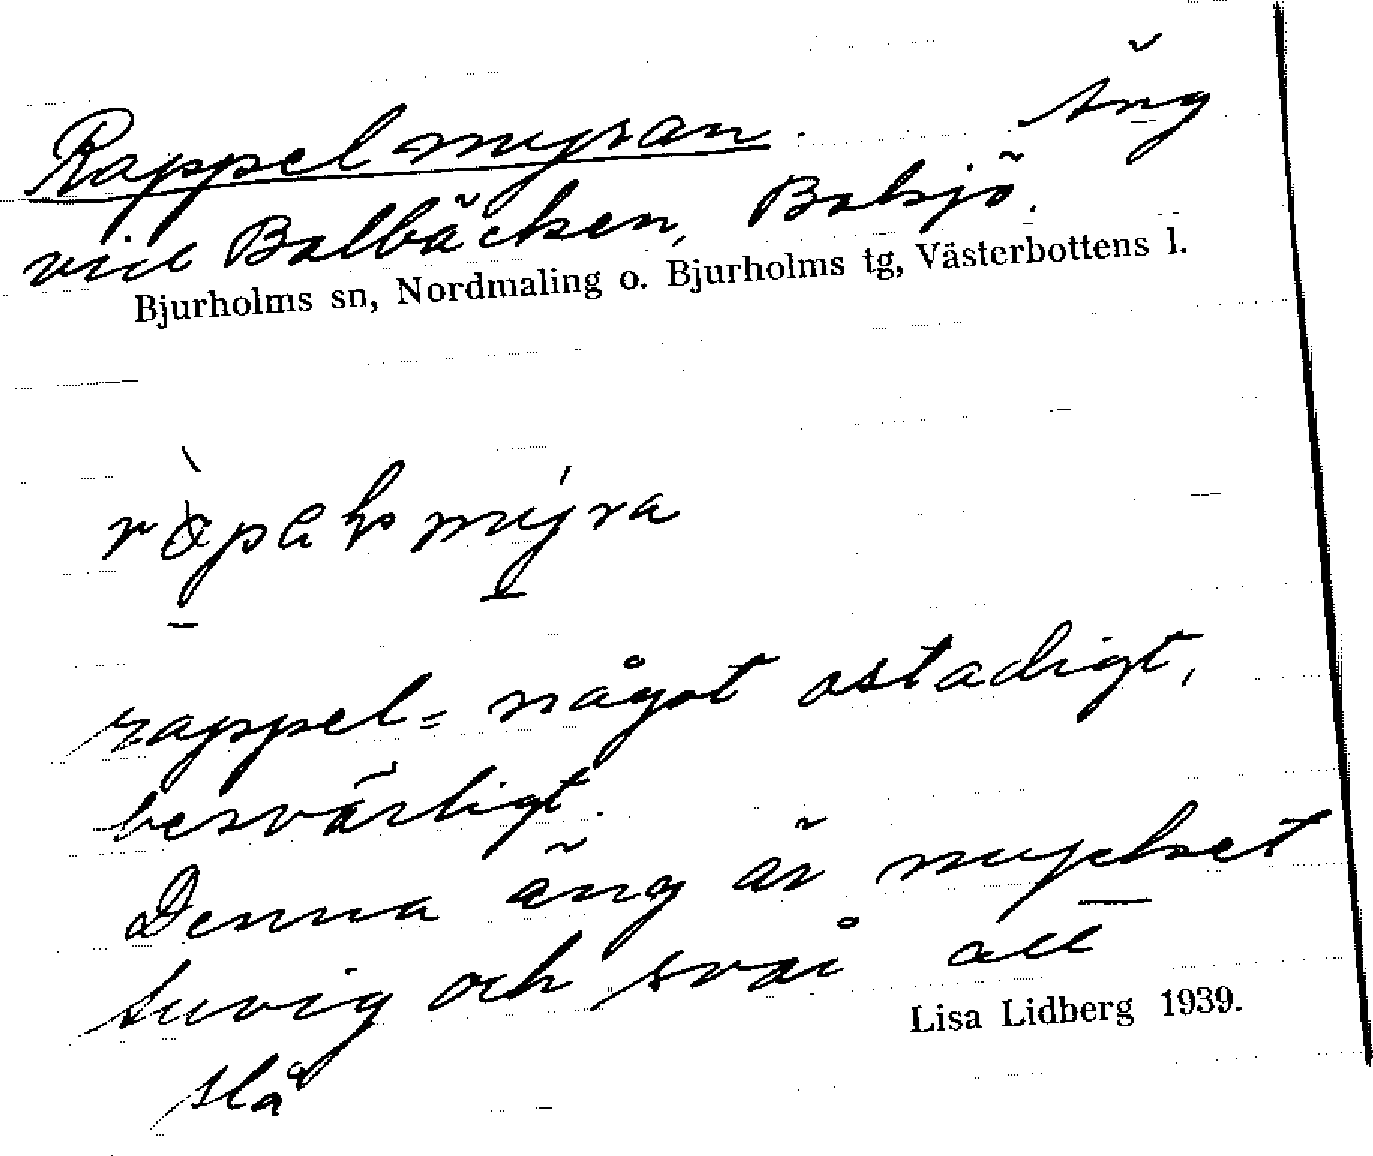 Rappelmyran. Äng
vid Balbäcken, Balsjö.
Bjurholms sn, Nordmaling o. Bjurholms tg, Västerbottens l.
rappel = något ostadigt,
besvärligt.
Denna äng är mycket
tuvig och svår att
Lisa Lidberg 1939.
slå